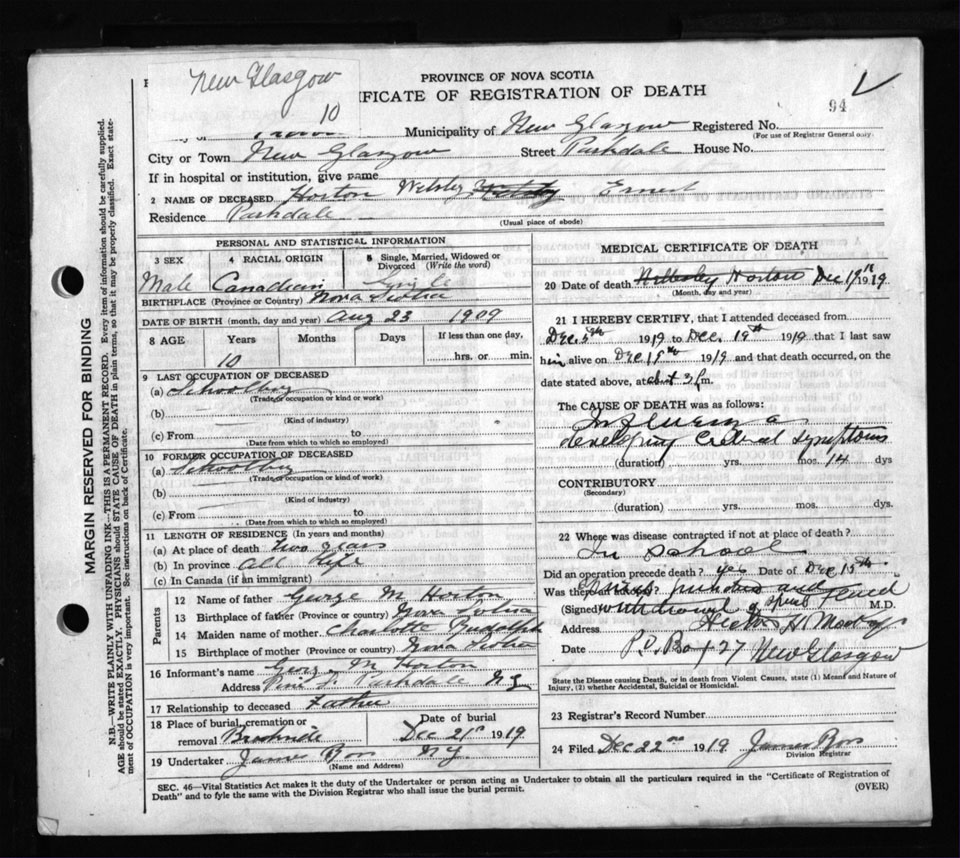 New Glasgow
10
PROVINCE OF NOVA SCOTIA
IFICATE OF REGISTRATION OF DEATH
94
Municipality of New Glasgow Registered No.
(For use of Registrar General only.
City or Town New Glasgow Street Parkdale House No.
If in hospital or institution, give name
2 NAME OF DECEASED Horton Welsley Ernest
Residence Parkdale
(Usual place of abode)
PERSONAL AND STATISTICAL INFORMATION
3 SEX 4 RACIAL ORIGIN 5 Single, Married, Widowed or Divorced (Write the word)
Male Canadian Single
BIRTHPLACE (Province or Country) Nova Scotia
DATE OF BIRTH (month, day and year) Aug 23 1909
8 AGE Years Months Days If less than one day,
10 hrs. or min.
9 LAST OCCUPATION OF DECEASED
(a) Schoolboy
(Trade, occupation or kind or work)
(b)
(Kind of industry)
(c) From to
(Date from which to which so employed)
10 FORMER OCCUPATION OF DECEASED
(a) Schoolboy
(Trade, occupation or kind or work)
(b)
(Kind of industry)
(c) From to
(Date from which to which so employed)
11 LENGTH OF RESIDENCE (In years and months)
(a) At place of death two years
(b) In province all life
(c) In Canada (if an immigrant)
Parents
12 Name of father George M Horton
13 Birthplace of father (Province or Country) Nova Scotia
14 Maiden name of mother Charlotte Rudolph
15 Birthplace of mother (Province or country) Nova Scotia
16 Informant's name George M Horton
Address Parkdale N.G.
17 Relationship to deceased Father
18 Place of burial, cremation or removal Date of burial
Dec 21st 1919
19 Undertaker James Bros N.G.
(Name and Address)
MEDICAL CERTIFICATE OF DEATH
20 Date of death Horton Dec 19th 1919
(Month, day and year)
21 I HEREBY CERTIFY, that I attended deceased from
Dec. 5th 1919 to Dec. 19th 1919 that I last saw
him alive on Dec 19th 1919 and that death occurred, on the
date stated above, at about 3 p.m.
The CAUSE OF DEATH was as follows:
Influenza
developing Cerebral Symptoms
(duration) yrs. mos. 14 dys
CONTRIBUTORY
(Secondary)
(duration) yrs. mos. dys.
22 Where was disease contracted if not at place of death?
In school
Did an operation precede death? yes Date of Dec 15th
Was there and
(Signed) withdrawal of spinal fluid M.D.
Address
Date P.O. Box 27 New Glasgow
State the Disease causing Death, or in death from Violent Causes, state (1) Means and Nature of
Injury, (2) whether Accidental, Suicidal or Homicidal.
23 Registrar's Record Number
24 Filed Dec 22nd 1919 James Bros
Division Registrar
SEC. 46—Vital Statistics Act makes it the duty of the Undertaker or person acting as Undertaker to obtain all the particulars required in the "Certificate of Registration of
Death" and to fyle the same with the Division Registrar who shall issue the burial permit.
(OVER)
MARGIN RESERVED FOR BINDING
N.B.—WRITE PLAINLY WITH UNFADING INK—THIS IS A PERMANENT RECORD. Every item of information should be carefully supplied.
AGE should be stated EXACTLY. PHYSICIANS should STATE CAUSE OF DEATH in plain terms, so that it may be properly classified. Exact state-
ment of OCCUPATION is very important. See instructions on back of Certificate.